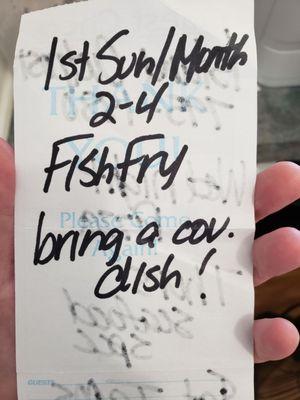 1st Sun/Month
2-4
THANK
FishFry
YOU!
Please Come
bring a cov.
Again!
dish!
GUESTS